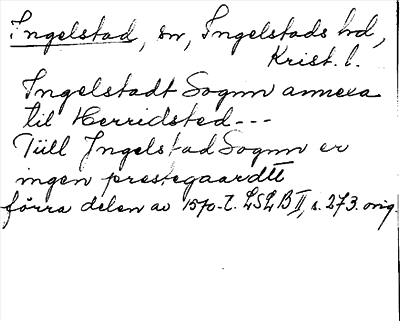 Ingelstad, sn, Ingelstads hd,
Krist. l.
Ingelstadt Sognn annexa
til Herridsted---
Tiill Ingelstad Sognn er
ingen prestegaardtt
förra delen av 1570-t. LSLB II, s. 273. orig.